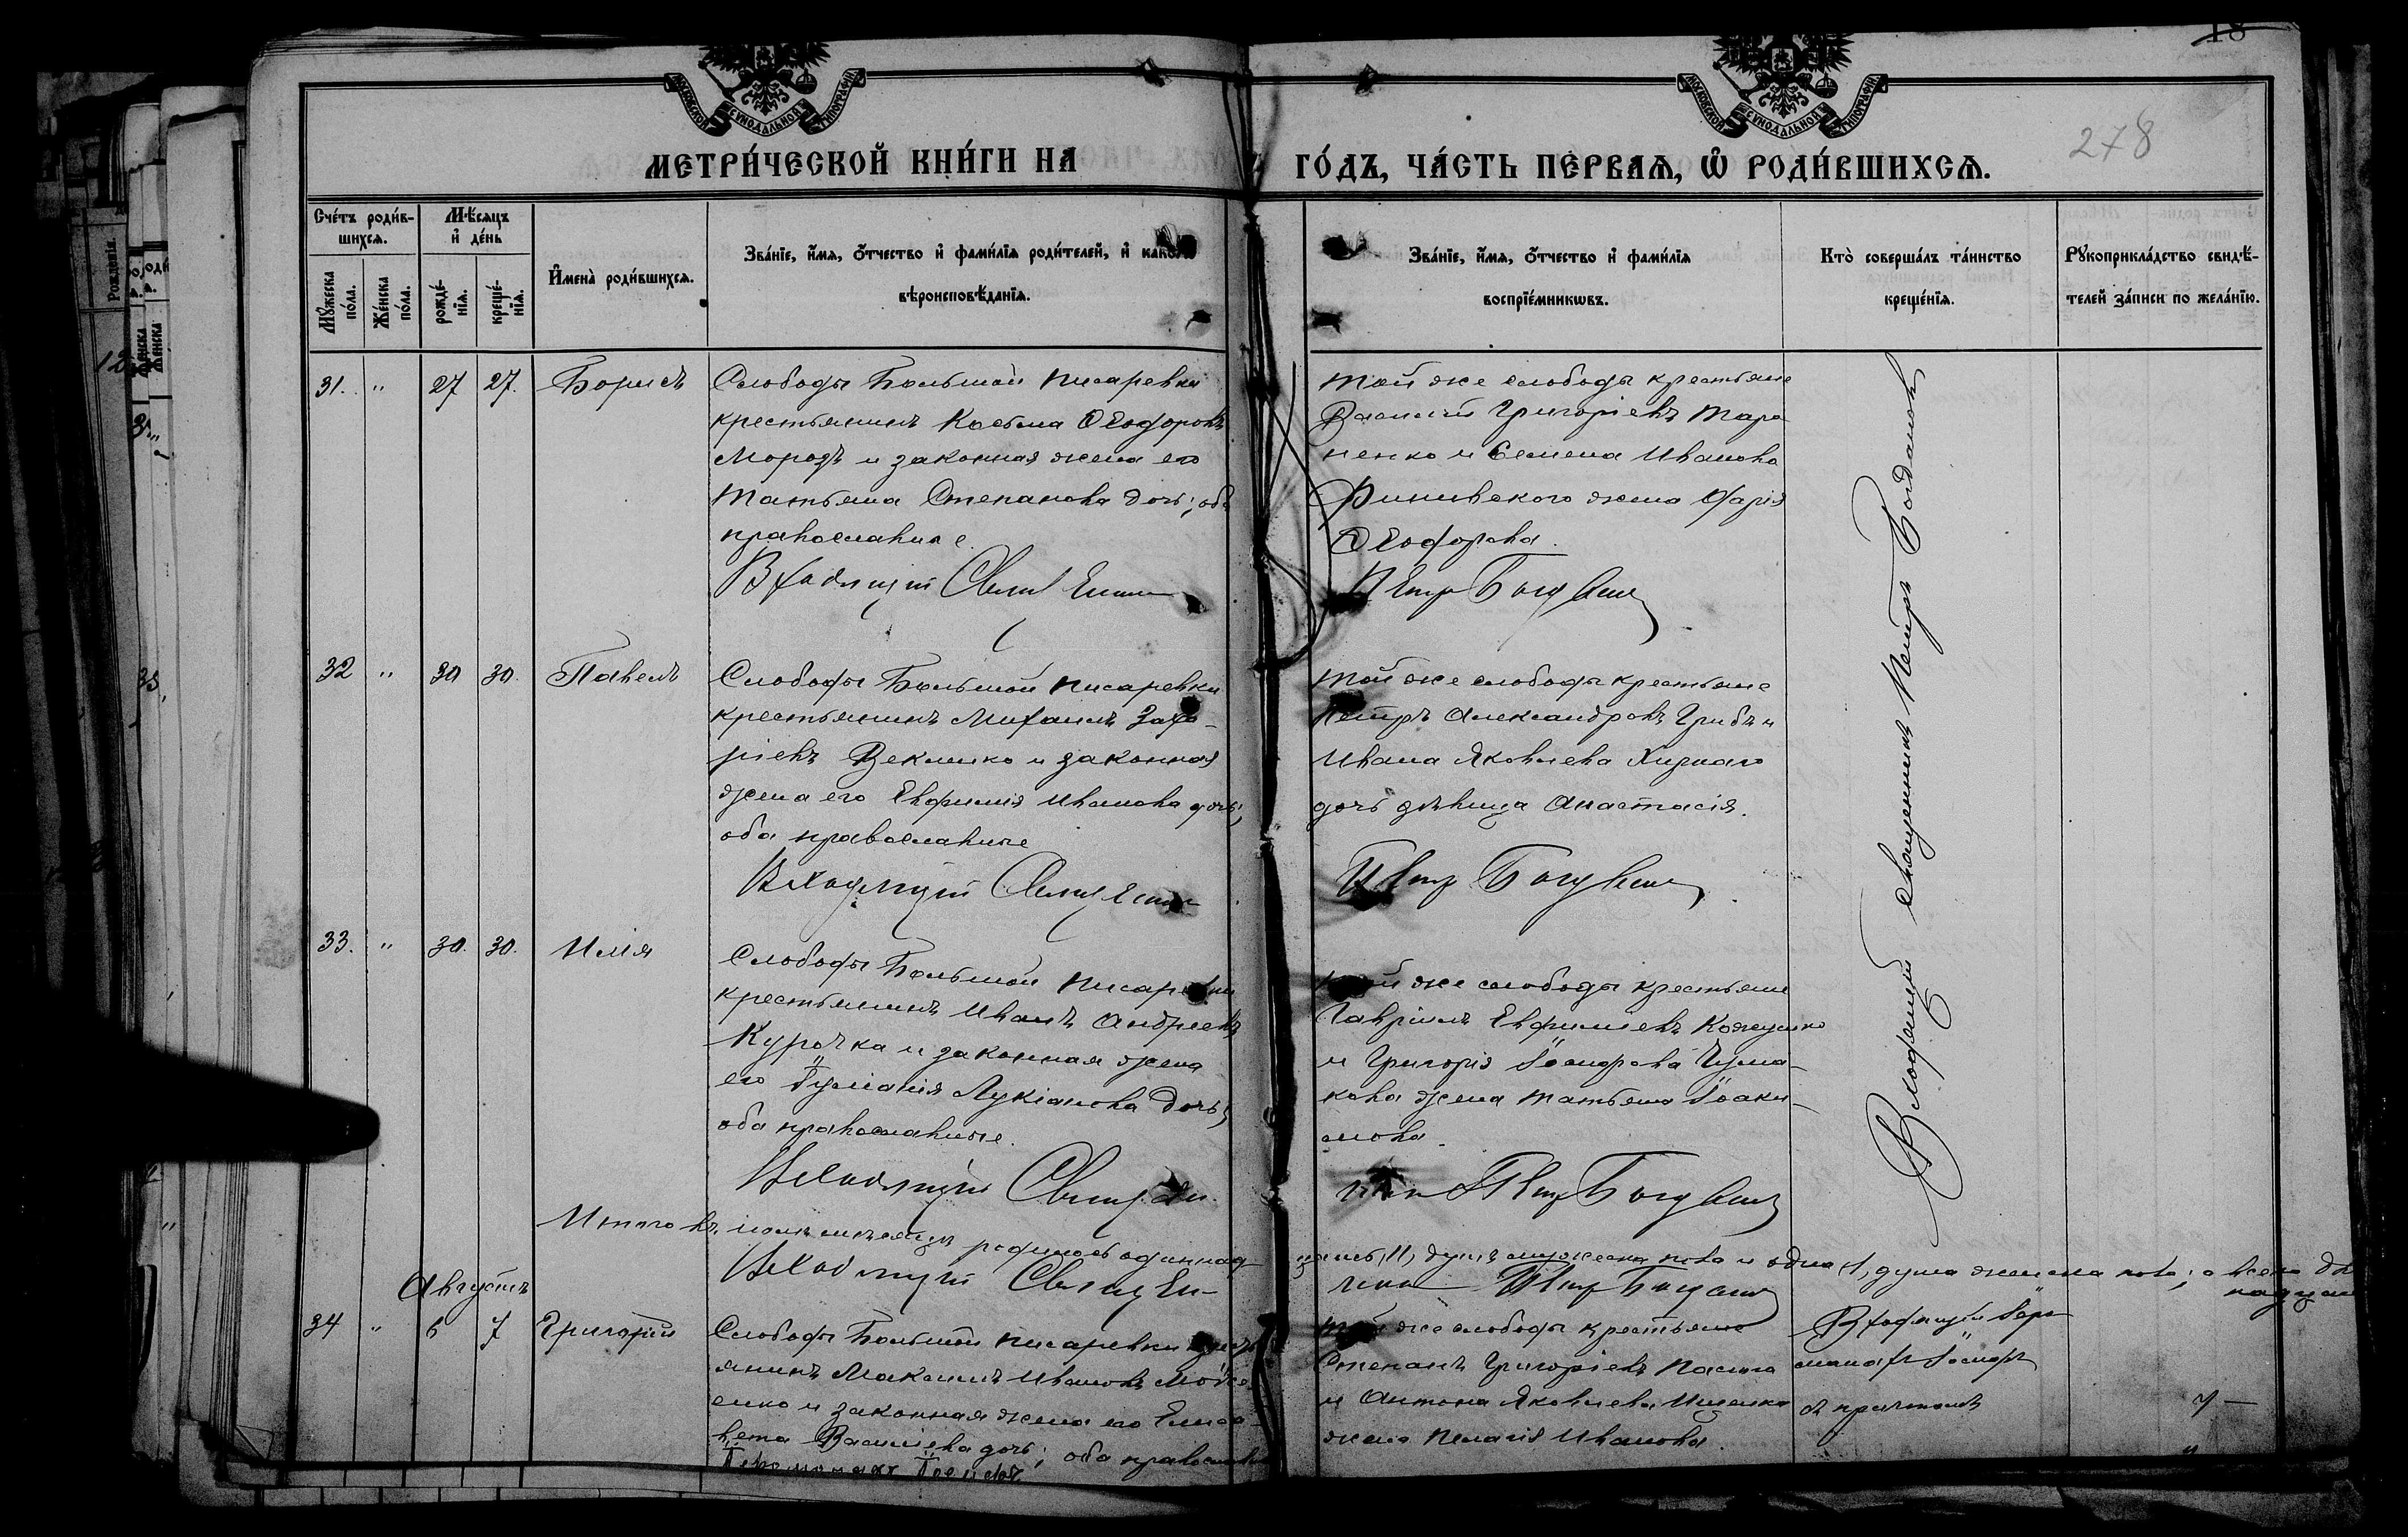 МОСКОВСКОЙ СѴНОДАЛЬНОЙ ТИПОГРАФІИ
МОСКОВСКОЙ СѴНОДАЛЬНОЙ ТИПОГРАФІИ
18
278
МЕТРИ́ЧЕСКОЙ КНИ́ГИ НА ГО́ДЪ, ЧА́СТЬ ПЕРВАЯ, Ѡ҆ РОДИ́ВШИХСЯ.
Сче́тъ роди́в-
шихся.
Мꙋжеска по́ла.
Же́нска по́ла.
Мѣ́сяцъ
и҆ де́нь
рожде́-
нїя.
креще́-
нїя.
И҆мена̀ роди́вшихся.
Зва́нїе, и҆́мя, о҆́тчество и҆ фами́лїя роди́телей, и҆ како́го
вѣроисповѣ́данїя.
Зва́нїе, и҆́мя, о҆́тчество и҆ фами́лїя
воспрїе́мникѡвъ.
Кто̀ соверша́лъ та́инство
креще́нїя.
Рꙋкоприкла́дство свидѣ́-
телей за́писи по жела́нїю.
31. " 27 27. Борисъ
Слободы Большой Писаревки
крестьянинъ Косьма Ѳеодоровъ
Морозъ и законная жена его
Татьяна Степанова дочь; оба
православные.
Входящій Священ
Той же слободы крестьяне
Василій Григоріевъ Тара
ненко и Семена Иванова
жена Марія
Ѳеодорова.
Петръ Богдановъ
Входящій священникъ Петръ Богдановъ
32 " 30 30. Павелъ
Слободы Большой Писаревки
крестьянинъ Михаилъ Заха-
ріевъ Векленко и законная
жена его Евфимія Иванова дочь;
оба православные
Входящій Священ
Той же слободы крестьяне
Петръ Александровъ Грибъ и
Ивана Яковлева Хирнаго
дочь дѣвица Анастасія.
Петръ Богдановъ
33. " 30. 30. Илія
Слободы Большой Писаревки
крестьянинъ Иванъ Андреевъ
Курочка и законная жена
его Іуліанія Лукіанова дочь;
оба православные.
Входящій Священ
Той же слободы крестьяне
Гавріилъ Евфиміевъ Кожушко
и Григорія Іосифова Чума-
кова жена Татьяна Іоаки-
мова.
никъ Петръ Богдановъ
Итого въ іюлѣ мѣсяцѣ родилось одиннад
цать (11) душъ мужеска пола и одна (1) душа женска пола; а всего две
надцать
Входящій Священ
никъ Петръ Богдановъ
Августъ
34 " 6 7 Григорій
Слободы Большой Писаревки крестъ
янинъ Максимъ Ивановъ Мойсе
енко и законная жена его Елиса
вета Василіева дочь; оба православн
Іеромонахъ Іосифъ
Той же слободы крестьяне
Степанъ Григоріевъ Пасюга
и Антона Яковлева Ищенко
жена Пелагія Иванова.
Входящій Іеро
монахъ Іосифъ
съ причтомъ